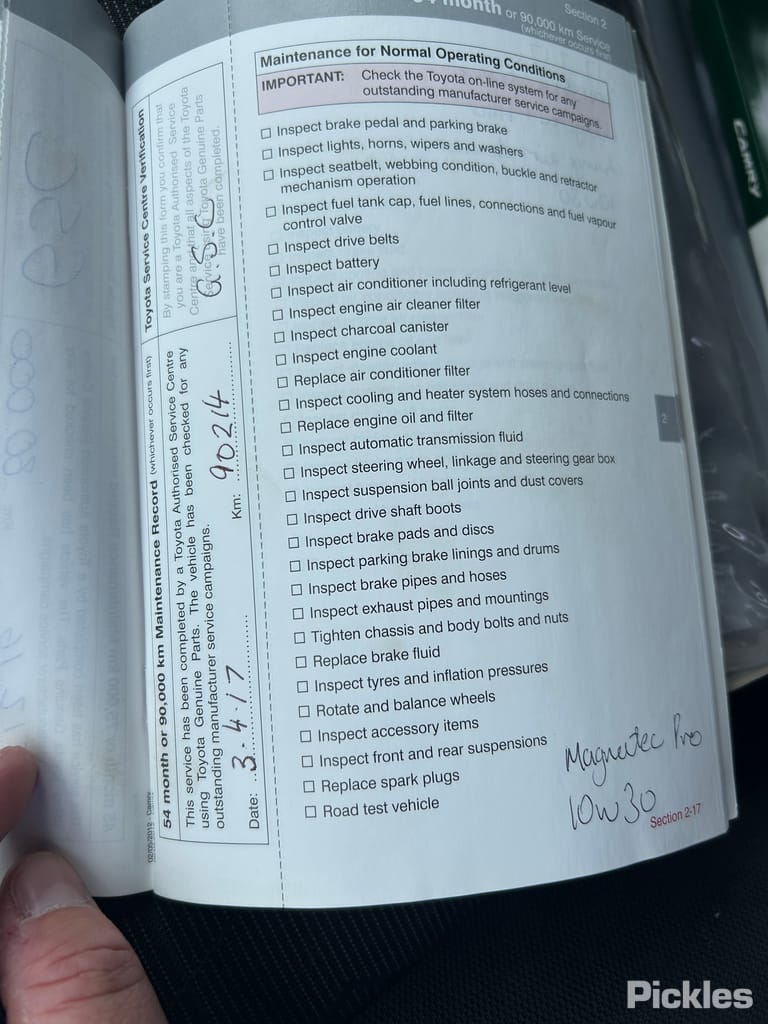 Section 2
month or 90,000 km Service
(whichever occurs first)
Maintenance for Normal Operating Conditions
IMPORTANT: Check the Toyota on-line system for any
outstanding manufacturer service campaigns.
☐ Inspect brake pedal and parking brake
☐ Inspect lights, horns, wipers and washers
☐ Inspect seatbelt, webbing condition, buckle and retractor
mechanism operation
☐ Inspect fuel tank cap, fuel lines, connections and fuel vapour
control valve
☐ Inspect drive belts
☐ Inspect battery
☐ Inspect air conditioner including refrigerant level
☐ Inspect engine air cleaner filter
☐ Inspect charcoal canister
☐ Inspect engine coolant
☐ Replace air conditioner filter
☐ Inspect cooling and heater system hoses and connections
☐ Replace engine oil and filter
☐ Inspect automatic transmission fluid
☐ Inspect steering wheel, linkage and steering gear box
☐ Inspect suspension ball joints and dust covers
☐ Inspect drive shaft boots
☐ Inspect brake pads and discs
☐ Inspect parking brake linings and drums
☐ Inspect brake pipes and hoses
☐ Inspect exhaust pipes and mountings
☐ Tighten chassis and body bolts and nuts
☐ Replace brake fluid
☐ Inspect tyres and inflation pressures
☐ Rotate and balance wheels
☐ Inspect accessory items
☐ Inspect front and rear suspensions
☐ Replace spark plugs
☐ Road test vehicle
Magnatec Pro
10W30
Section 2-17
2
54 month or 90,000 km Maintenance Record (whichever occurs first)
This service has been completed by a Toyota Authorised Service Centre
using Toyota Genuine Parts. The vehicle has been checked for any
outstanding manufacturer service campaigns.
Date: 3.4.17 Km: 90214
Toyota Service Centre Verification
By stamping this form you confirm that
you are a Toyota Authorised Service
Centre and that all aspects of the Toyota
Service using Toyota Genuine Parts
have been completed.
02/05/2012 Camry
CAMRY
80 000
Pickles